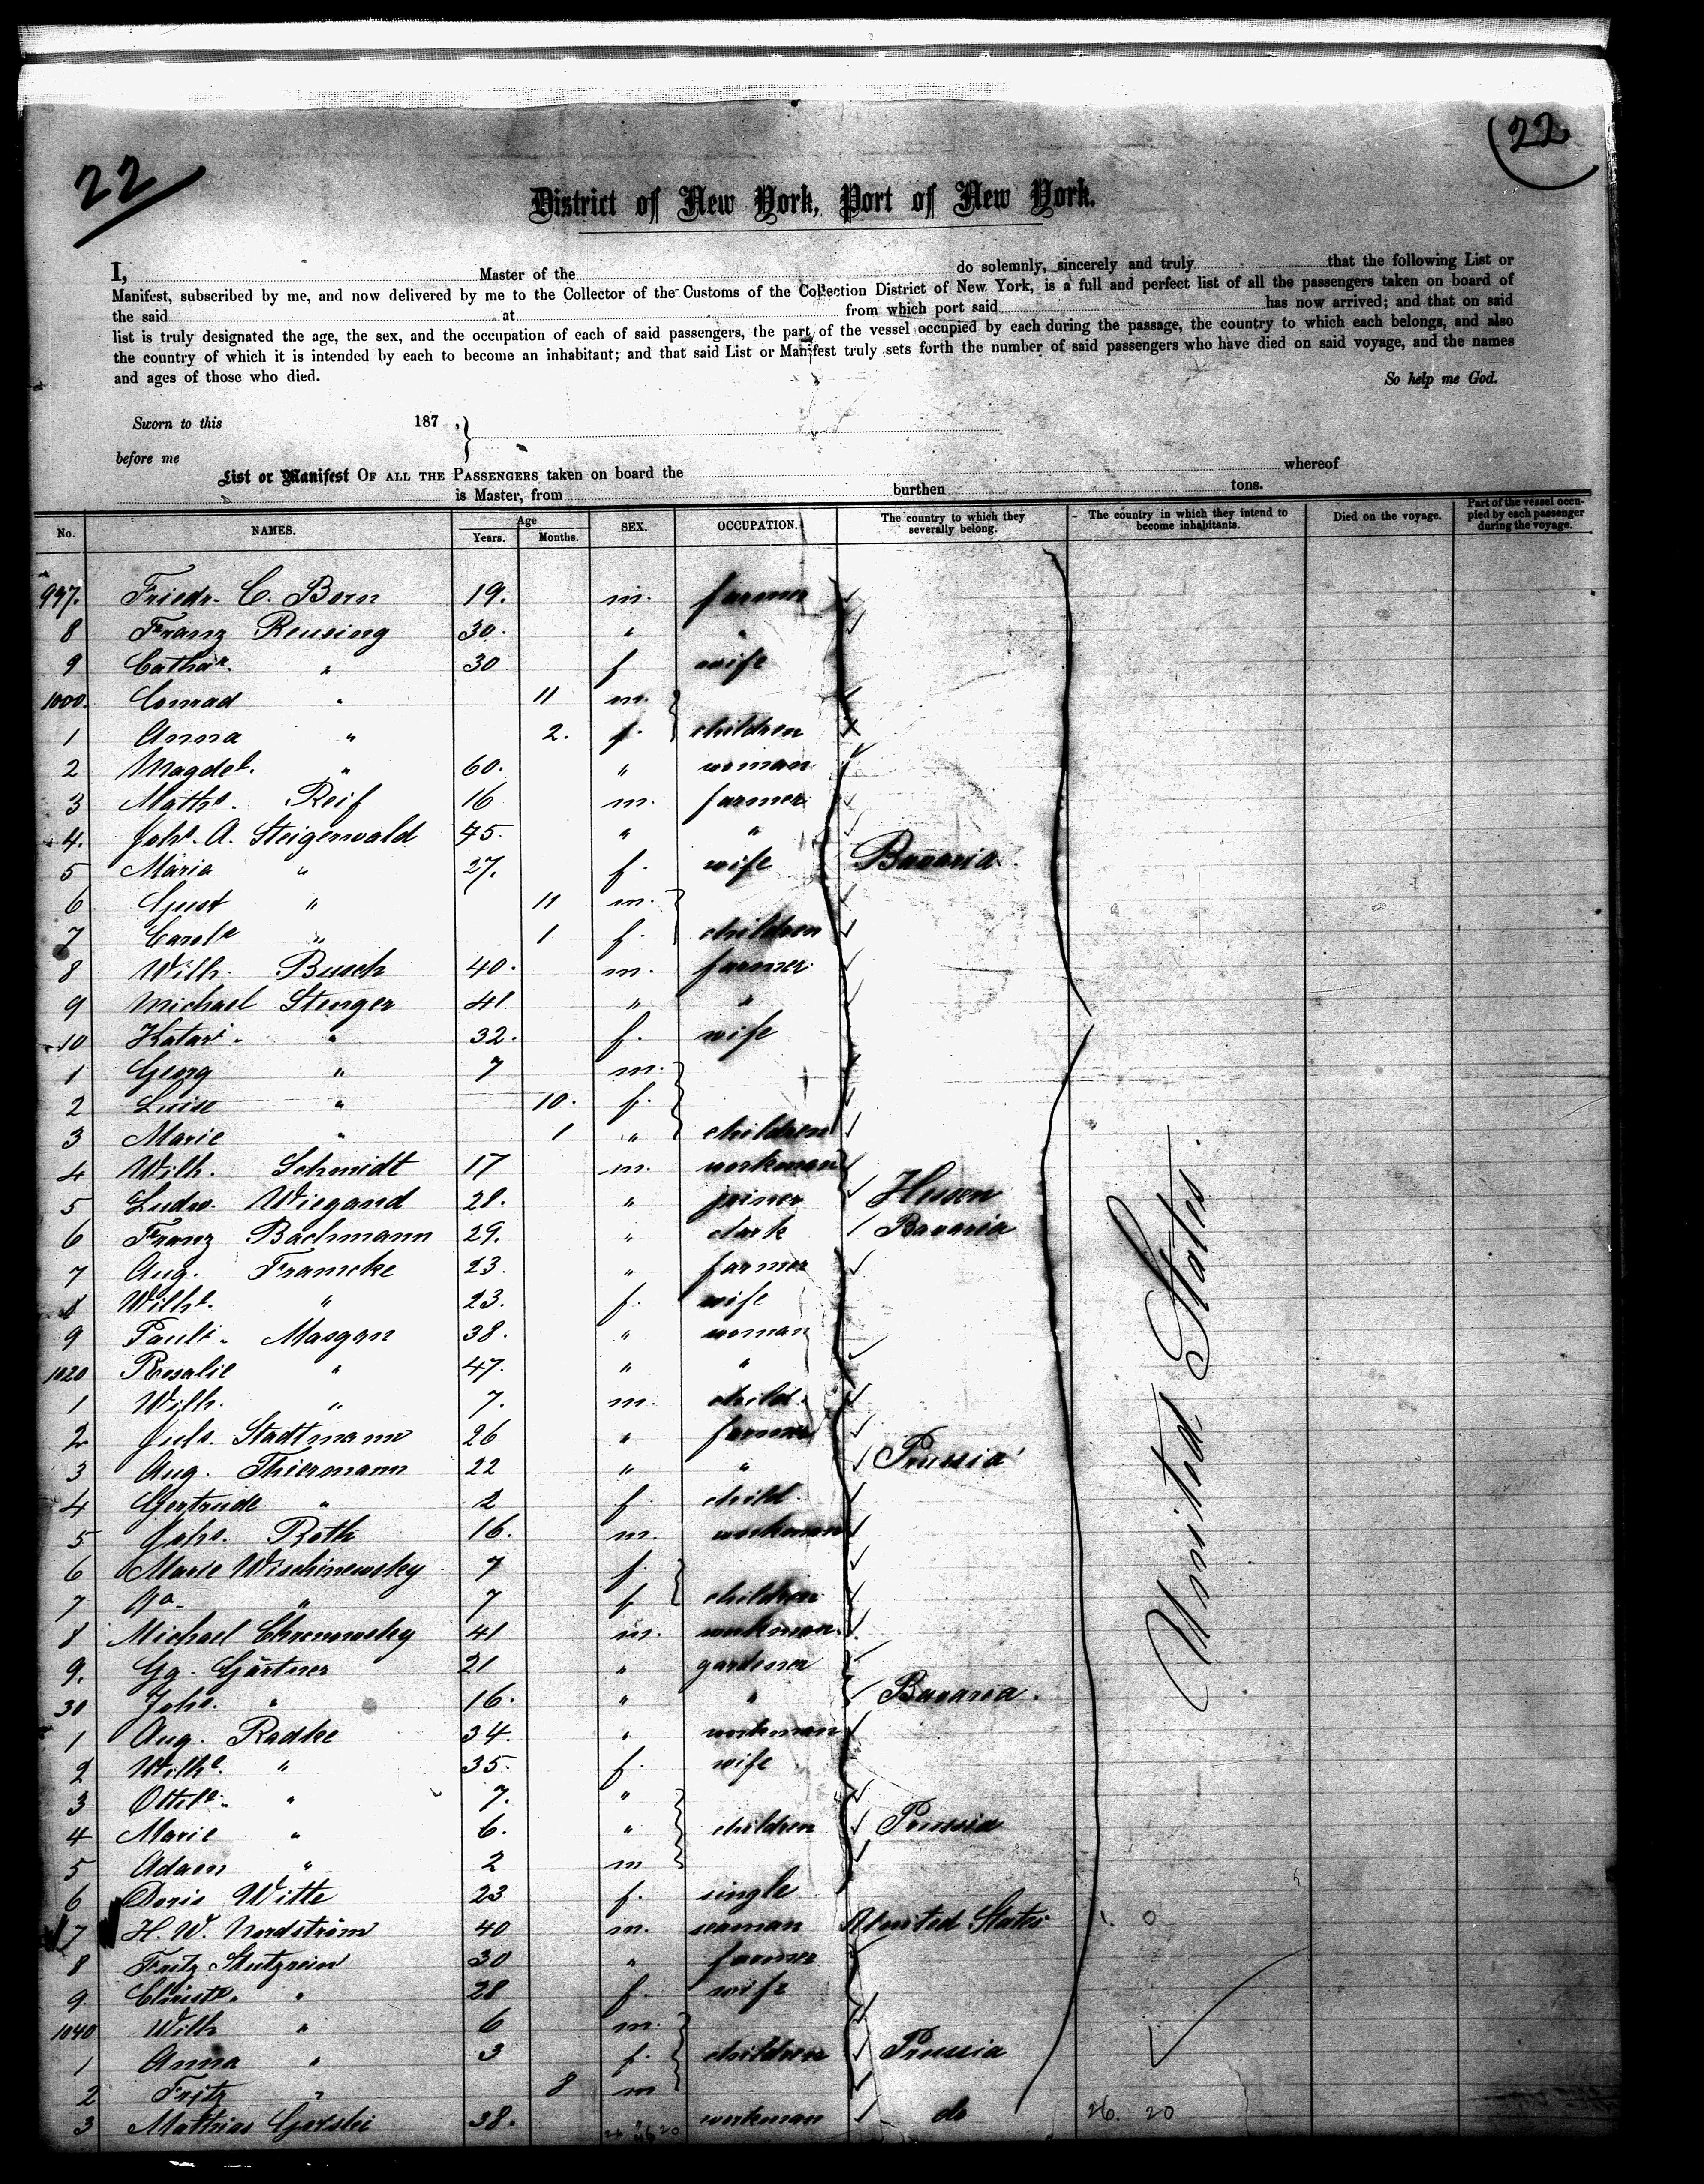 22
(22
District of New York, Port of New York.
I, Master of the do solemnly, sincerely and truly that the following List or
Manifest, subscribed by me, and now delivered by me to the Collector of the Customs of the Collection District of New York, is a full and perfect list of all the passengers taken on board of
the said at from which port said has now arrived; and that on said
list is truly designated the age, the sex, and the occupation of each of said passengers, the part of the vessel occupied by each during the passage, the country to which each belongs, and also
the country of which it is intended by each to become an inhabitant; and that said List or Manifest truly sets forth the number of said passengers who have died on said voyage, and the names
and ages of those who died. So help me God.
Sworn to this 187 ,
before me
List or Manifest OF ALL THE PASSENGERS taken on board the whereof
is Master, from burthen tons.
No. NAMES. Age Years. Months. SEX. OCCUPATION. The country to which they severally belong. The country in which they intend to become inhabitants. Died on the voyage. Part of the vessel occupied by each passenger during the voyage.
997. Friedr. C. Born 19. m. farmer
8 Franz Reusing 30. " "
9 Cathar. " 30 f wife
1000. Conrad " 11 m.
1 Anna " 2. f. children
2 Magdel. " 60. " woman
3 Maths. Reif 16 m. farmer
4. Johs. A. Steigerwald 45. " "
5 Maria " 27. f. wife Bavaria
6 Gust " 11 m.
7 Carole " 1 f. children
8 Wilh. Busch 40. m. farmer
9 Michael Stenger 41 " "
10 Katari. " 32. f. wife
1 Georg " 7 m.
2 Luise " 10. f.
3 Marie " 1 " children
4 Wilh. Schmidt 17 m. workman
5 Ludw. Wiegand 28. " joiner Hessen
6 Franz Bachmann 29. " clark Bavaria
7 Aug. Francke 23. " farmer
8 Wilhe. " 23. f. wife
9 Pauli. Masgan 38. " woman
1020 Rosalie " 47. " "
1 Wilh. " 7. m. child.
2 Juls. Stadtmann 26 " farmer
3 Aug. Thiermann 22 " " Prussia
4 Gertrude " 2 f. child.
5 Johs. Roth 16. m. workman
6 Marie Wischinewsky 7 f.
7 " 7 f children
8 Michael Chronowsky 41 m. workman.
9. Gg. Gärtner 21 " gardener
30 Johs. " 16. " " Bavaria.
1 Aug. Radke 34. " workman
2 Wilhe. " 35. f. wife
3 Ottile. " 7. "
4 Marie " 6. " children Prussia
5 Adam " 2 m
6 Doris Witte 23 f. single
7 H. W. Nordström 40 m. seaman United States 1. 0
8 Fritz Stutzrein 30 " farmer
9. Christe. " 28 f. wife
1040 Wilh " 6 m.
1 Anna " 3 f. children Prussia
2 Fritz " 8 m
3 Mathias Gorski 38. " workman do 26. 20
United States.